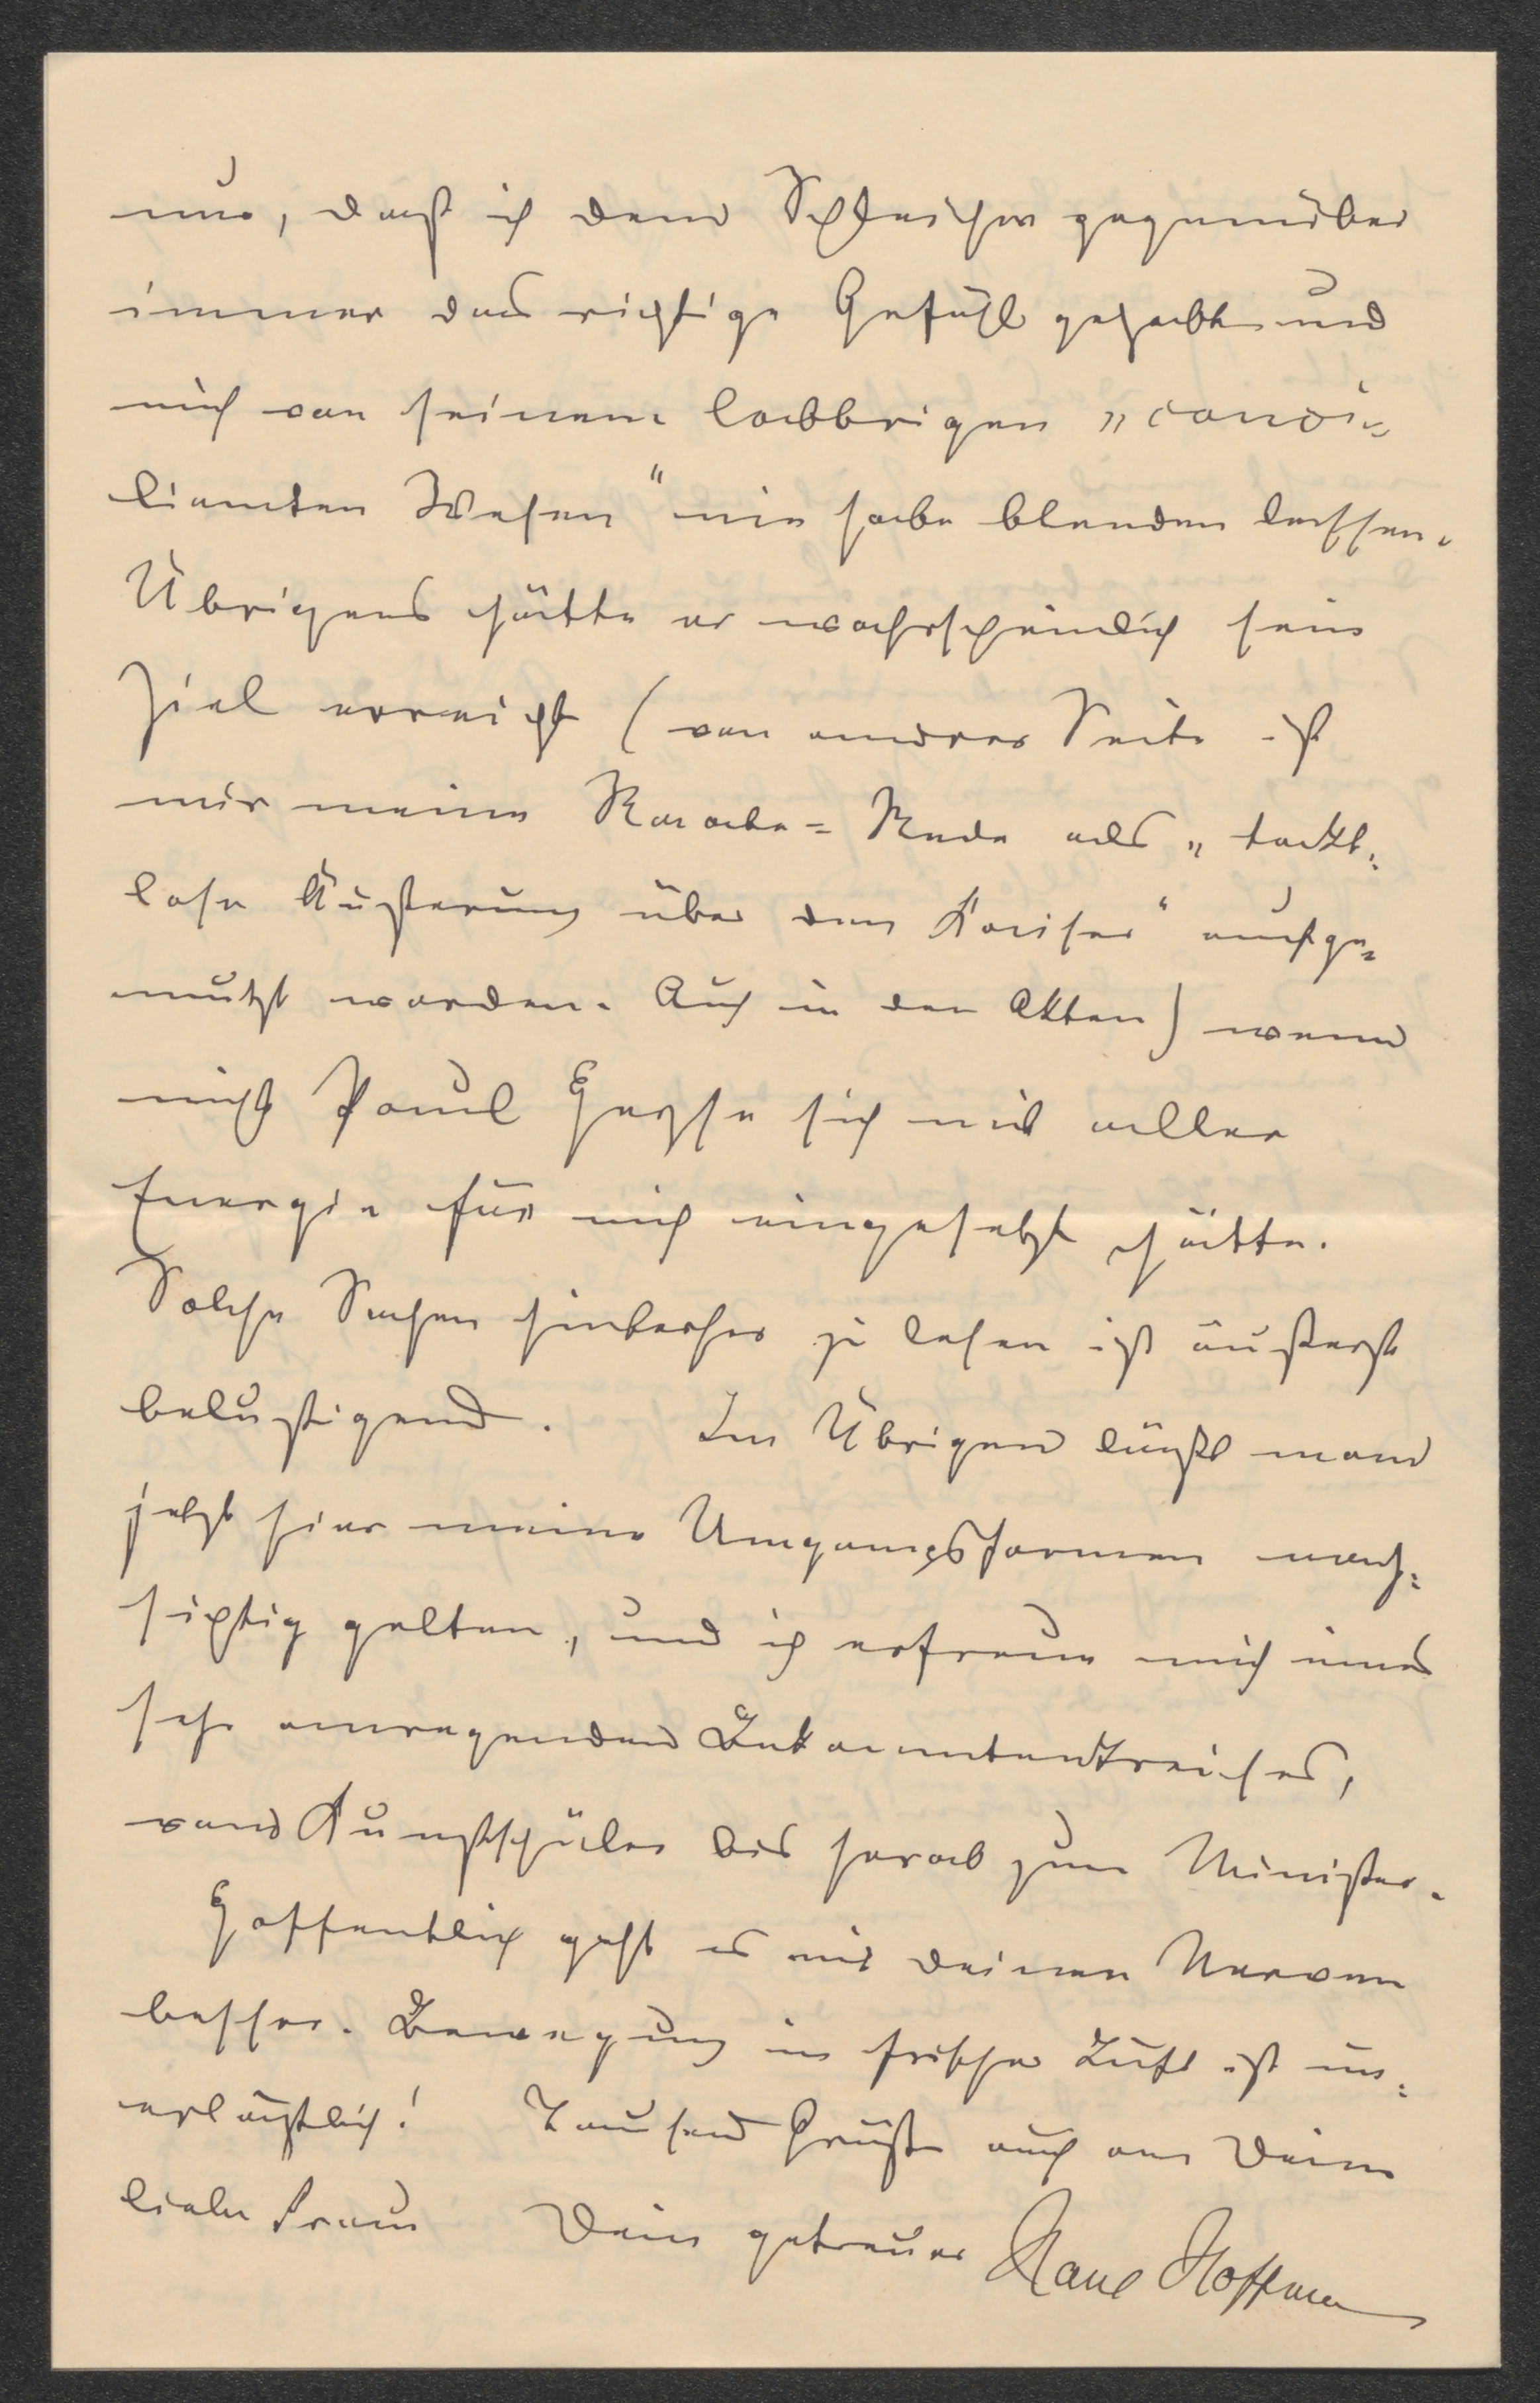 nur, daß ich dem Schleicher gegenüber
immer das richtige Gefühl gehabt und
mich von seinem labbrigen „conci=
lianten Wesen“ nie habe blenden lassen.
Übrigens hätte er wahrscheinlich sein
Ziel erreicht (von andrer Seite ist
mir meine Raabe=Rede als „takt=
lose Äußerung über den Kaiser“ aufge=
mutzt worden. Auch in den Akten) wenn
nicht Paul Heyse sich mit aller
Energie für mich eingesetzt hätte.
Solche Sachen hinterher zu lesen ist äußerst
belustigend. Im Übrigen läßt man
jetzt hier meine Umgangsformen nach=
sichtig gelten, und ich erfreue mich eines
sehr anregenden Bekanntenkreises,
vom Kunstschüler bis herab zum Minister.
Hoffentlich geht es mit Deinen Nerven
besser. Bewegung in frischer Luft ist un=
erläßlich! Tausend Grüße auch an Deine
liebe Frau Dein getreuer Hans Hoffmann